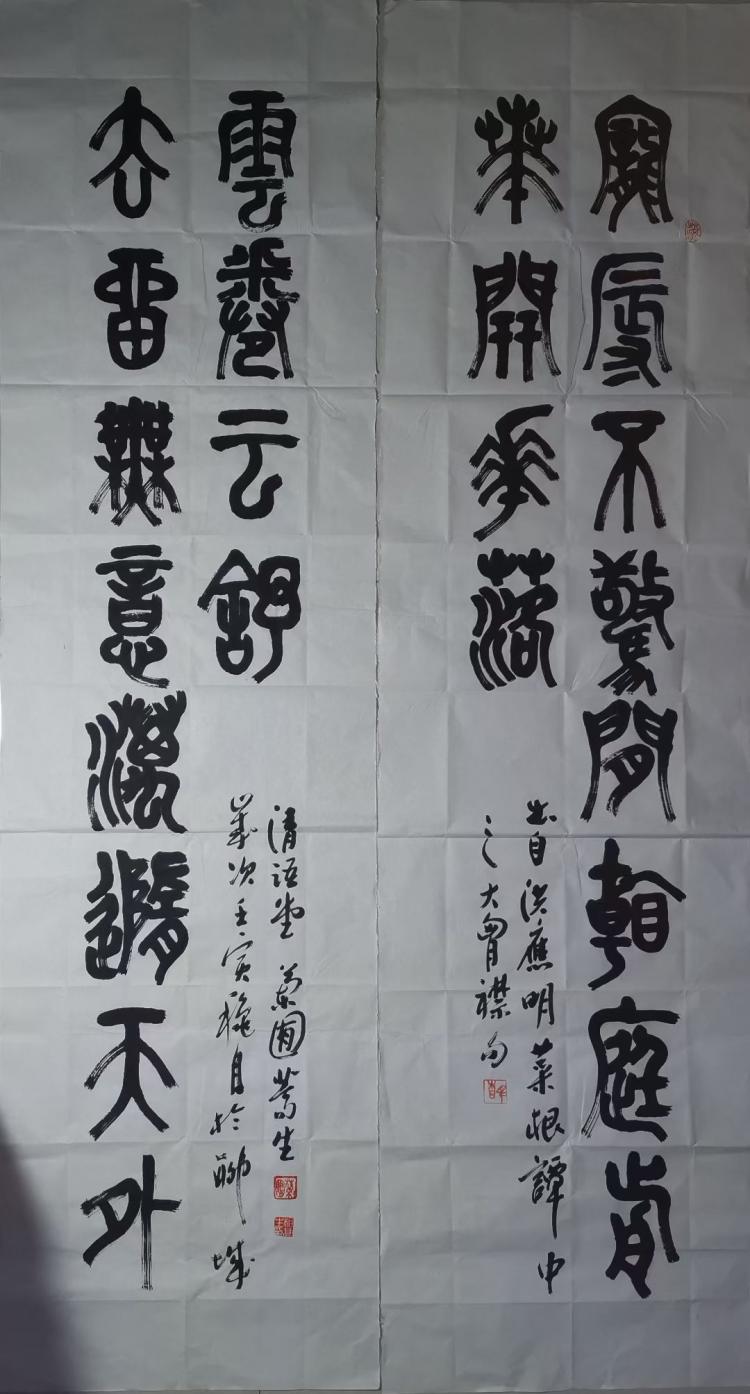 寵辱不驚閒看庭前
華開花落
出自洪應明菜根譚中
之大胷襟句
去留無意漫隨天外
雲卷云舒
歲次壬寅龝月於聊城
清語堂 蘭圃蒿生